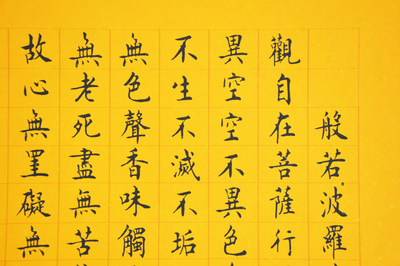 般若波羅
觀自在菩薩行
異空空不異色
不生不滅不垢
無色聲香味觸
無老死盡無苦
故心無罣礙無